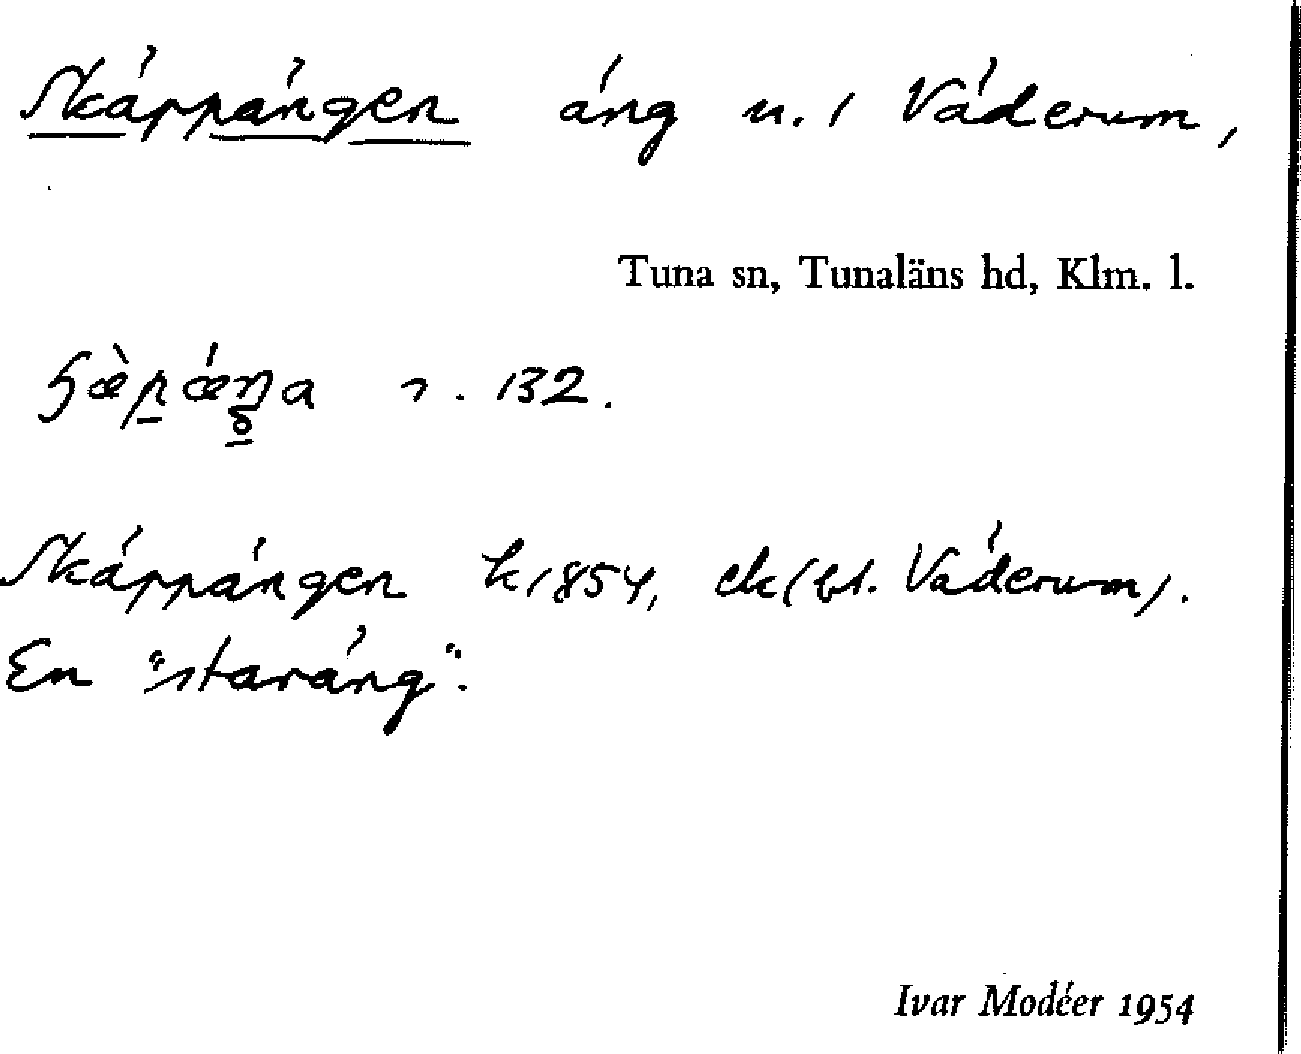 Skärpängen äng u. i Väderum,
Tuna sn, Tunaläns hd, Klm. l.
s. 132.
Skärpängen k 1854, ek (bl. Väderum).
En "starräng".
Ivar Modéer 1954